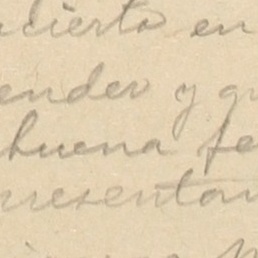 cierto en
ender y qu
buena fe
presentar